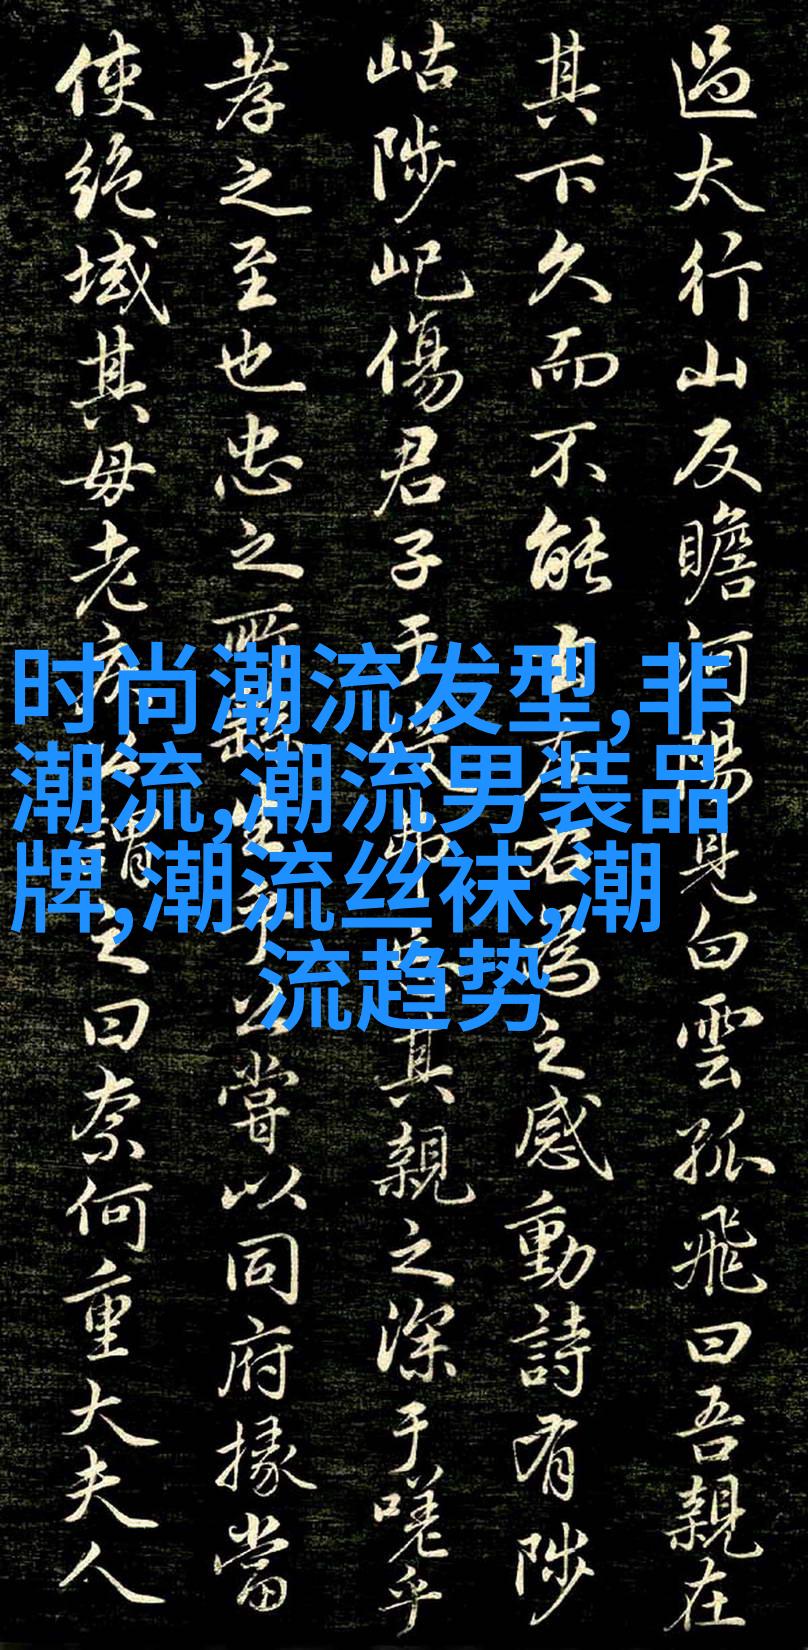 過太行山反瞻河陽見白雲孤飛曰吾親在
其下久而不能左右為之感動詩有陟
岵陟屺傷君子于役弗其親之深于嗟乎
孝之至也忠之所生乎公嘗以同府掾當
使絕域其母老疾公謂之曰奈何重大夫人
时尚潮流发型,非
潮流,潮流男装品
牌,潮流丝袜,潮
流趋势